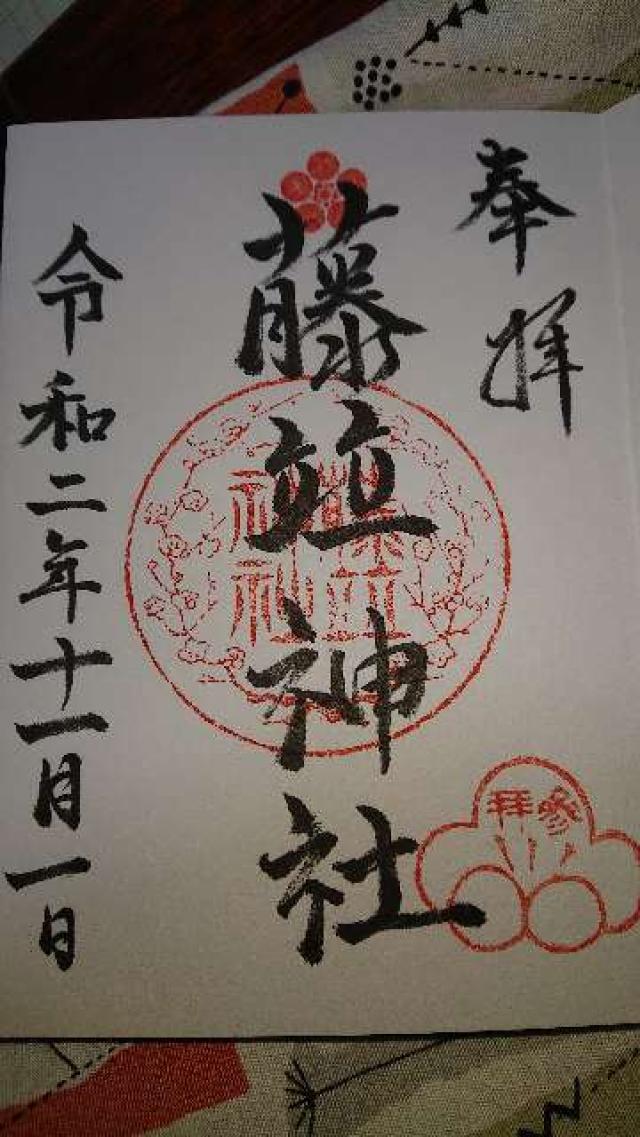 奉拝
藤並神社
令和二年十一月一日
藤並
神社
参拝